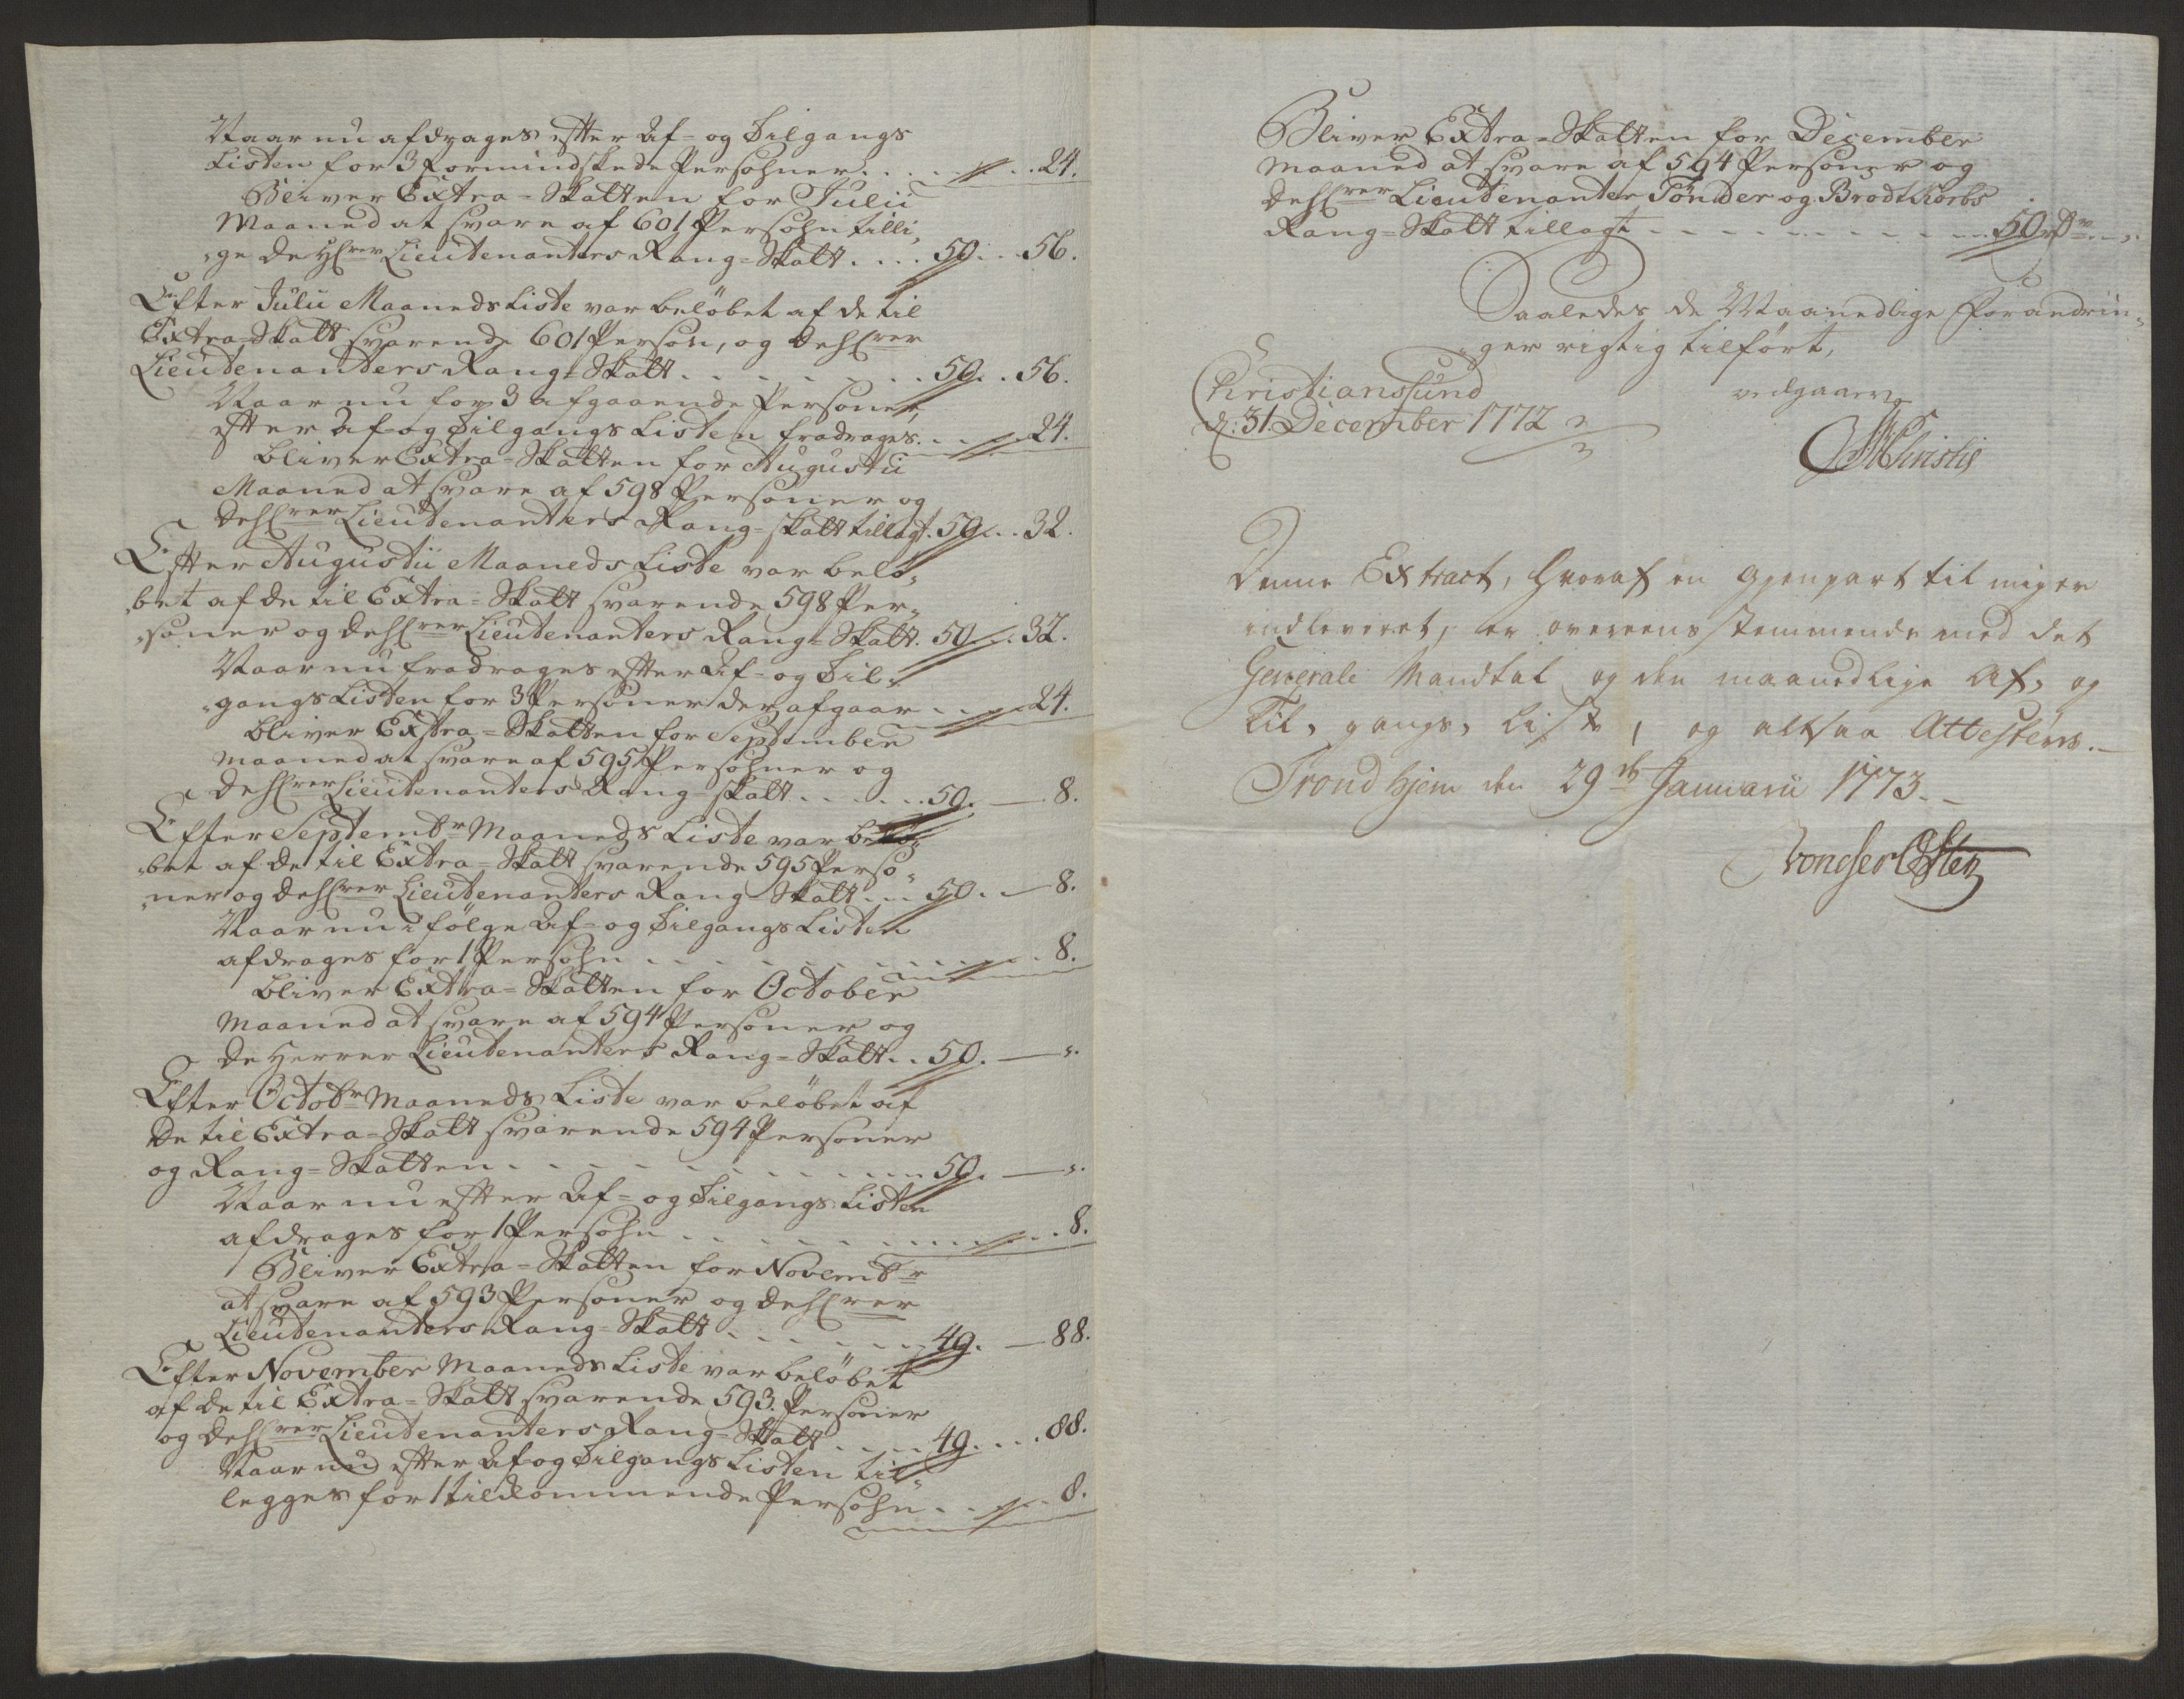 Naar nu afdrages efter Af- og Tilgangs
Listen for 3 Formindskede Persohner . . . . 24.
Bliver Extra-Skatten for Julii
Maaned at svare af 601 Persohn tilli-
-ge de H[er]rer Lieutenanters Rang-Skatt . . . . 50 . . . 56.
Efter Julii Maaneds Liste var beløbet af de til
Extra-Skatt svarende 601 Person, og de H[er]rer
Lieutenanters Rang-Skatt . . . . . . . 50 . . 56.
Naar nu for 3 afgaaende Personer,
efter Af- og Tilgangs Listen fradrages . . . . 24.
bliver Extra-Skatten for Augustii
Maaned at svare af 598 Personer og
de H[er]rer Lieutenanters Rang-Skatt tillagt . 50 . . . 32.
Efter Augustii Maaneds Liste var belø-
bet af de til Extra-Skatt svarende 598 Per-
-soner og de H[er]rer Lieutenanters Rang-Skatt . 50 . . 32.
Naar nu fradrages efter Af- og Til-
-gangs Listen for 3 Personer der afgaar . . . . 24.
bliver Extra-Skatten for September
maaned at svare af 595 Persohner og
de H[er]rer Lieutenanters Rang-Skatt . . . . . . 50. — 8.
Efter Septembr Maaneds Liste var belø-
-bet af de til Extra-Skatt svarende 595 Perso-
-ner og de H[er]rer Lieutenanters Rang Skatt . . . 50. . — 8.
Naar nu i følge Af- og Tilgangs Listen
afdrages for 1 Persohn . . . . . . . . . . . 8.
bliver Extra-Skatten for October
Maaned at svare af 594 Personer og
de Herrer Lieutenanters Rang-Skatt . . 50. — ".
Efter Octobr Maaneds Liste var beløbet af
de til Extra-Skatt svarende 594 Personer
og Rang-Skatten . . . . . . . . . . . 50. — ".
Naar nu efter Af- og Tilgangs Listen
afdrages for 1 Persohn . . . . . . . . . . . 8.
Bliver Extra-Skatten for Novembr
at svare af 593 Personer og de H[er]rer
Lieutenanters Rang-Skatt . . . . . . 49. — 88.
Efter November Maaneds Liste var beløbet
af de til Extra-Skatt svarende 593. Personer
og de H[er]rer Lieutenanters Rang-Skatt . . . . 49. . . . 88.
Naar nu efter Af- og Tilgangs Listen til-
legges for 1 tilkommende Persohn . . . . 8.
Bliver Extra-Skatten for December
Maaned at svare af 594 Personer og
de H[er]rer Lieutenanter Tønder og Brodtkorbs
Rang-Skatt tillagt . . . . . . . . . . . 50 rdr ".
Saaledes de Maanedlige Forandrin-
-ger rigtig tilført,
Christianssund
d: 31 December 1772
vedgaaer
Christie
Denne Extract, hvoraf en Gjenpart til mig er
indleveret, er overeensstemmende med det
Generale Mandtal og den maanedlige Af- og
Til-gangs-Liste, og altsaa Attesteres. —
Trondhjem den 29de Januarii 1773. —